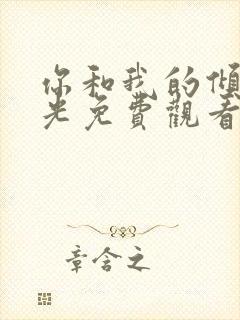 你和我的傾
光免費觀看
章含之